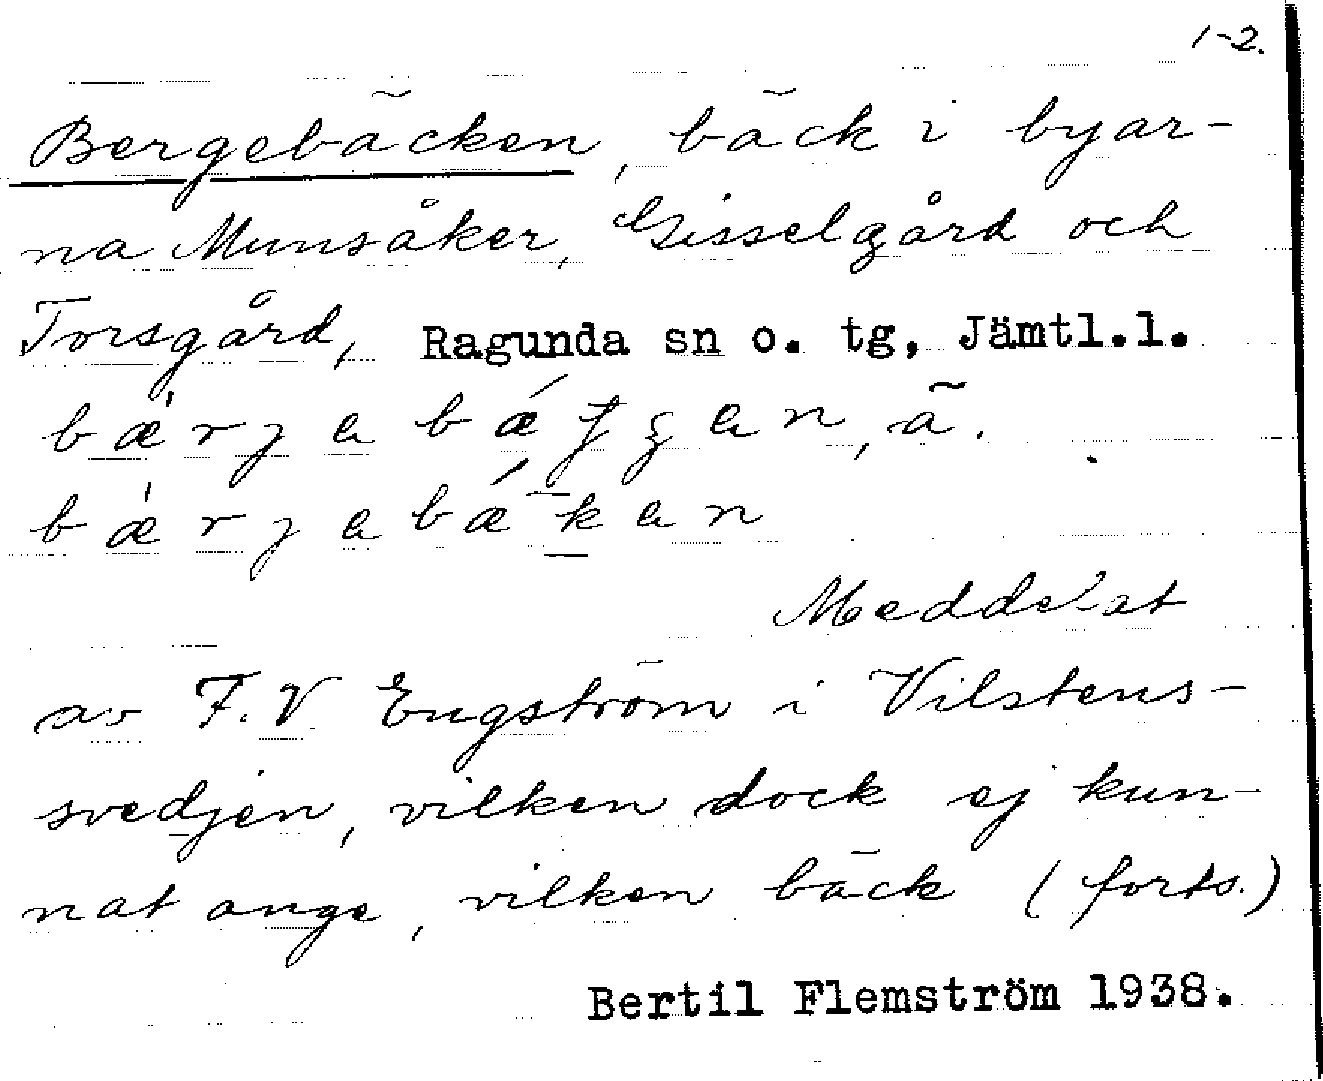 1-2.
Bergebäcken, bäck i byar-
na Munsåker, Gisselgård och
Torsgård, Ragunda sn o. tg, Jämtl.l.
Meddelat
av F.V Engström i Vilstens-
svedjen, vilken dock ej kun-
nat ange, vilken bäck (forts.)
Bertil Flemström 1938.